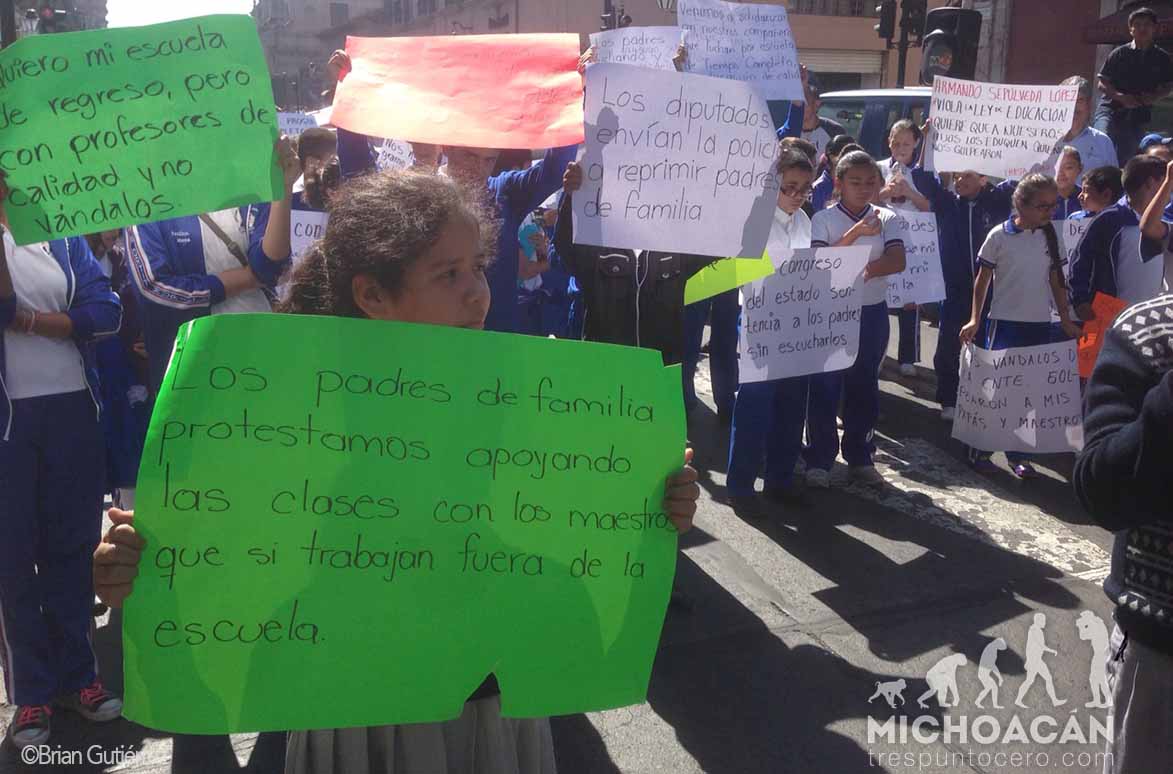 Quiero mi escuela
de regreso, pero
con profesores de
calidad y no
vándalos.
Los padres
Venimos a solidarizar
con nuestros compañeros
que luchan por escuela
de Tiempo Completo
Los diputados
envían la polic
a reprimir padres
de familia
ARMANDO SEPULVEDA LOPEZ
VIOLA LA LEY DE
EDUCACIÓN
QUIERE QUE A NUESTROS
HIJOS LOS EDUQUEN QUIENES
NOS GOLPEARON
Congreso
del estado sen-
tencia a los padres
sin escucharlos.
VANDALOS DE
CNTE. GOL-
PEARON A MIS
PAPÁS Y MAESTRO
Los padres de familia
protestamos apoyando
las clases con los maestros
que si trabajan fuera de la
escuela.
©Brian Gutiérre
MICHOACÁN
trespuntocero.com